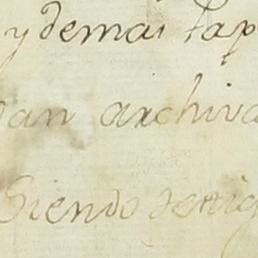 y demas tap
dan archiva
Siendo